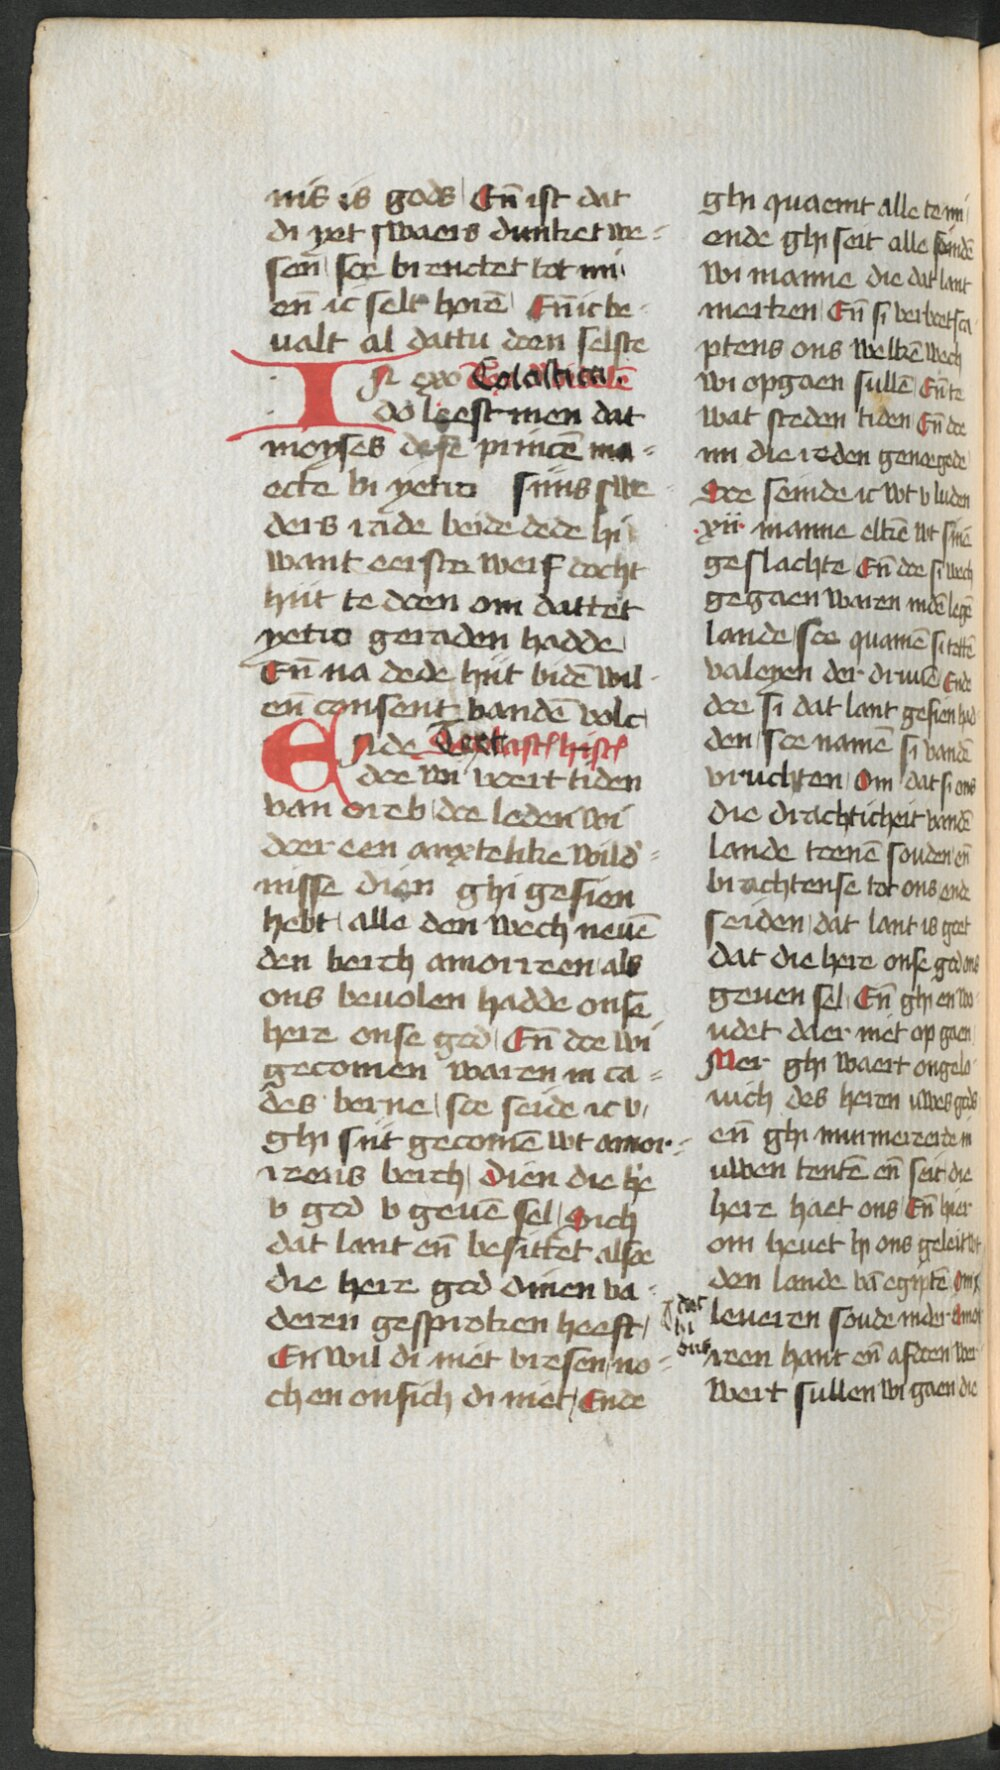 nis is gods En̄ ist dat
di yet swaers dunket we-
sen soe brenctet tot mi
en̄ ic selt horē En̄ ic be-
ualt al dattu doen selste
In exo Scolastica
do leestmen dat
moyses dese princē ma-
ecte bi yetro sijns swe
ders rade beide dede hi
want eerster werf docht
hijt te doen om dattet
yetro geraden hadde
En̄ na dede hijt bidē wil
en̄ consent vandē volc
Ende Text
doe wi voert tiden
van oreb doe leden wi
doer een anxtelike wild-
nisse dien ghi gesien
hebt alle den wech neuē
den berch amorreen als
ons beuolen hadde onse
here onse god En̄ doe wi
gecomen waren in ca-
des berne soe seide ic v
ghi sijt gecomē wt amor-
reens berch Dien die he
v god v geuē sel Sich
dat lant en̄ besittet alsoe
die here god dinen va-
deren gesproken heeft
En wil di niet vresen no-
ch en onsich di niet Ende
ghi quaemt alle te mi
ende ghi seit alle seindē
wi manne die dat lant
merken En̄ si verbootsca
ptens ons welkē wech
wi opgaen sullē En̄ te
wat steden tiden En̄ doe
mi die reden genoegede
Doe seinde ic wt v luden
xii manne elkē wt sinē
geslachte En̄ doe si wech
gegaen waren indē legē
lande soe quamē si tottē
valeyen der druuē Ende
doe si dat lant gesien had
den soe namē si vandē
vruchten Om dat si ons
die drachticheit vandē
lande toenē souden en̄
brachtense tot ons ende
seiden dat lant is goet
dat die here onse god ons
geuen sel En̄ ghi en wo
udet daer niet op gaen
Mer ghi waert ongelo
uich des heren uwes gods
en̄ ghi murmereerde in
uwen tentē en̄ seit die
here haet ons En̄ hier
om heuet hi ons geleit wt
den lande vā egiptē Om
dat
hi
ons
leueren soude inder Amor
reen hant en̄ afdoen Wer
wert sullen wi gaen die